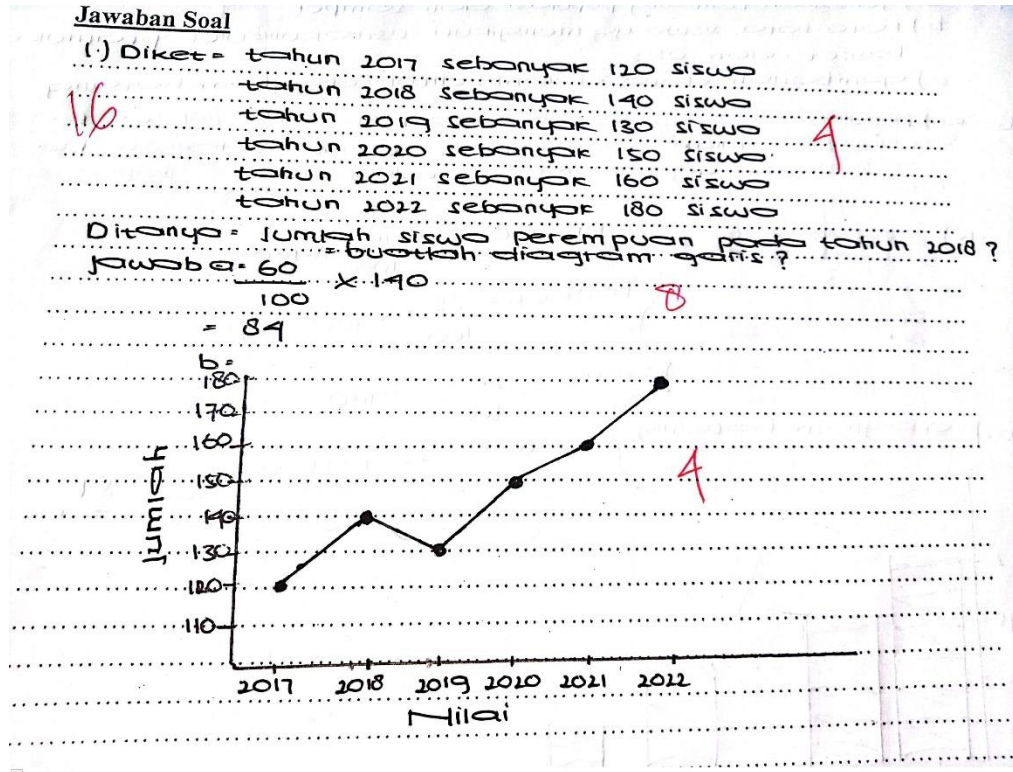 Jawaban Soal
1.) Diket = tahun 2017 sebanyak 120 siswa
tahun 2018 sebanyak 140 siswa
16
tahun 2019 sebanyak 130 siswa
4
tahun 2020 sebanyak 150 siswa
tahun 2021 sebanyak 160 siswa
tahun 2022 sebanyak 180 siswa
Ditanya = Jumlah siswa perempuan pada tahun 2018 ?
= buatlah diagram garis ?
Jawab a. 60
100
x 140
8
= 84
b.
180
170
160
150
4
140
130
120
110
Jumlah
2017 2018 2019 2020 2021 2022
Nilai